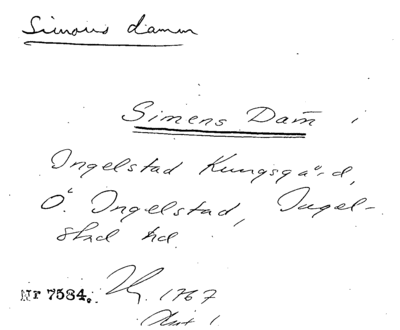 Simons damm
Simens Dam̄ i
Ingelstad Kungsgård,
Ö. Ingelstad, Ingel-
stad hd.
Nr 7584. 1767